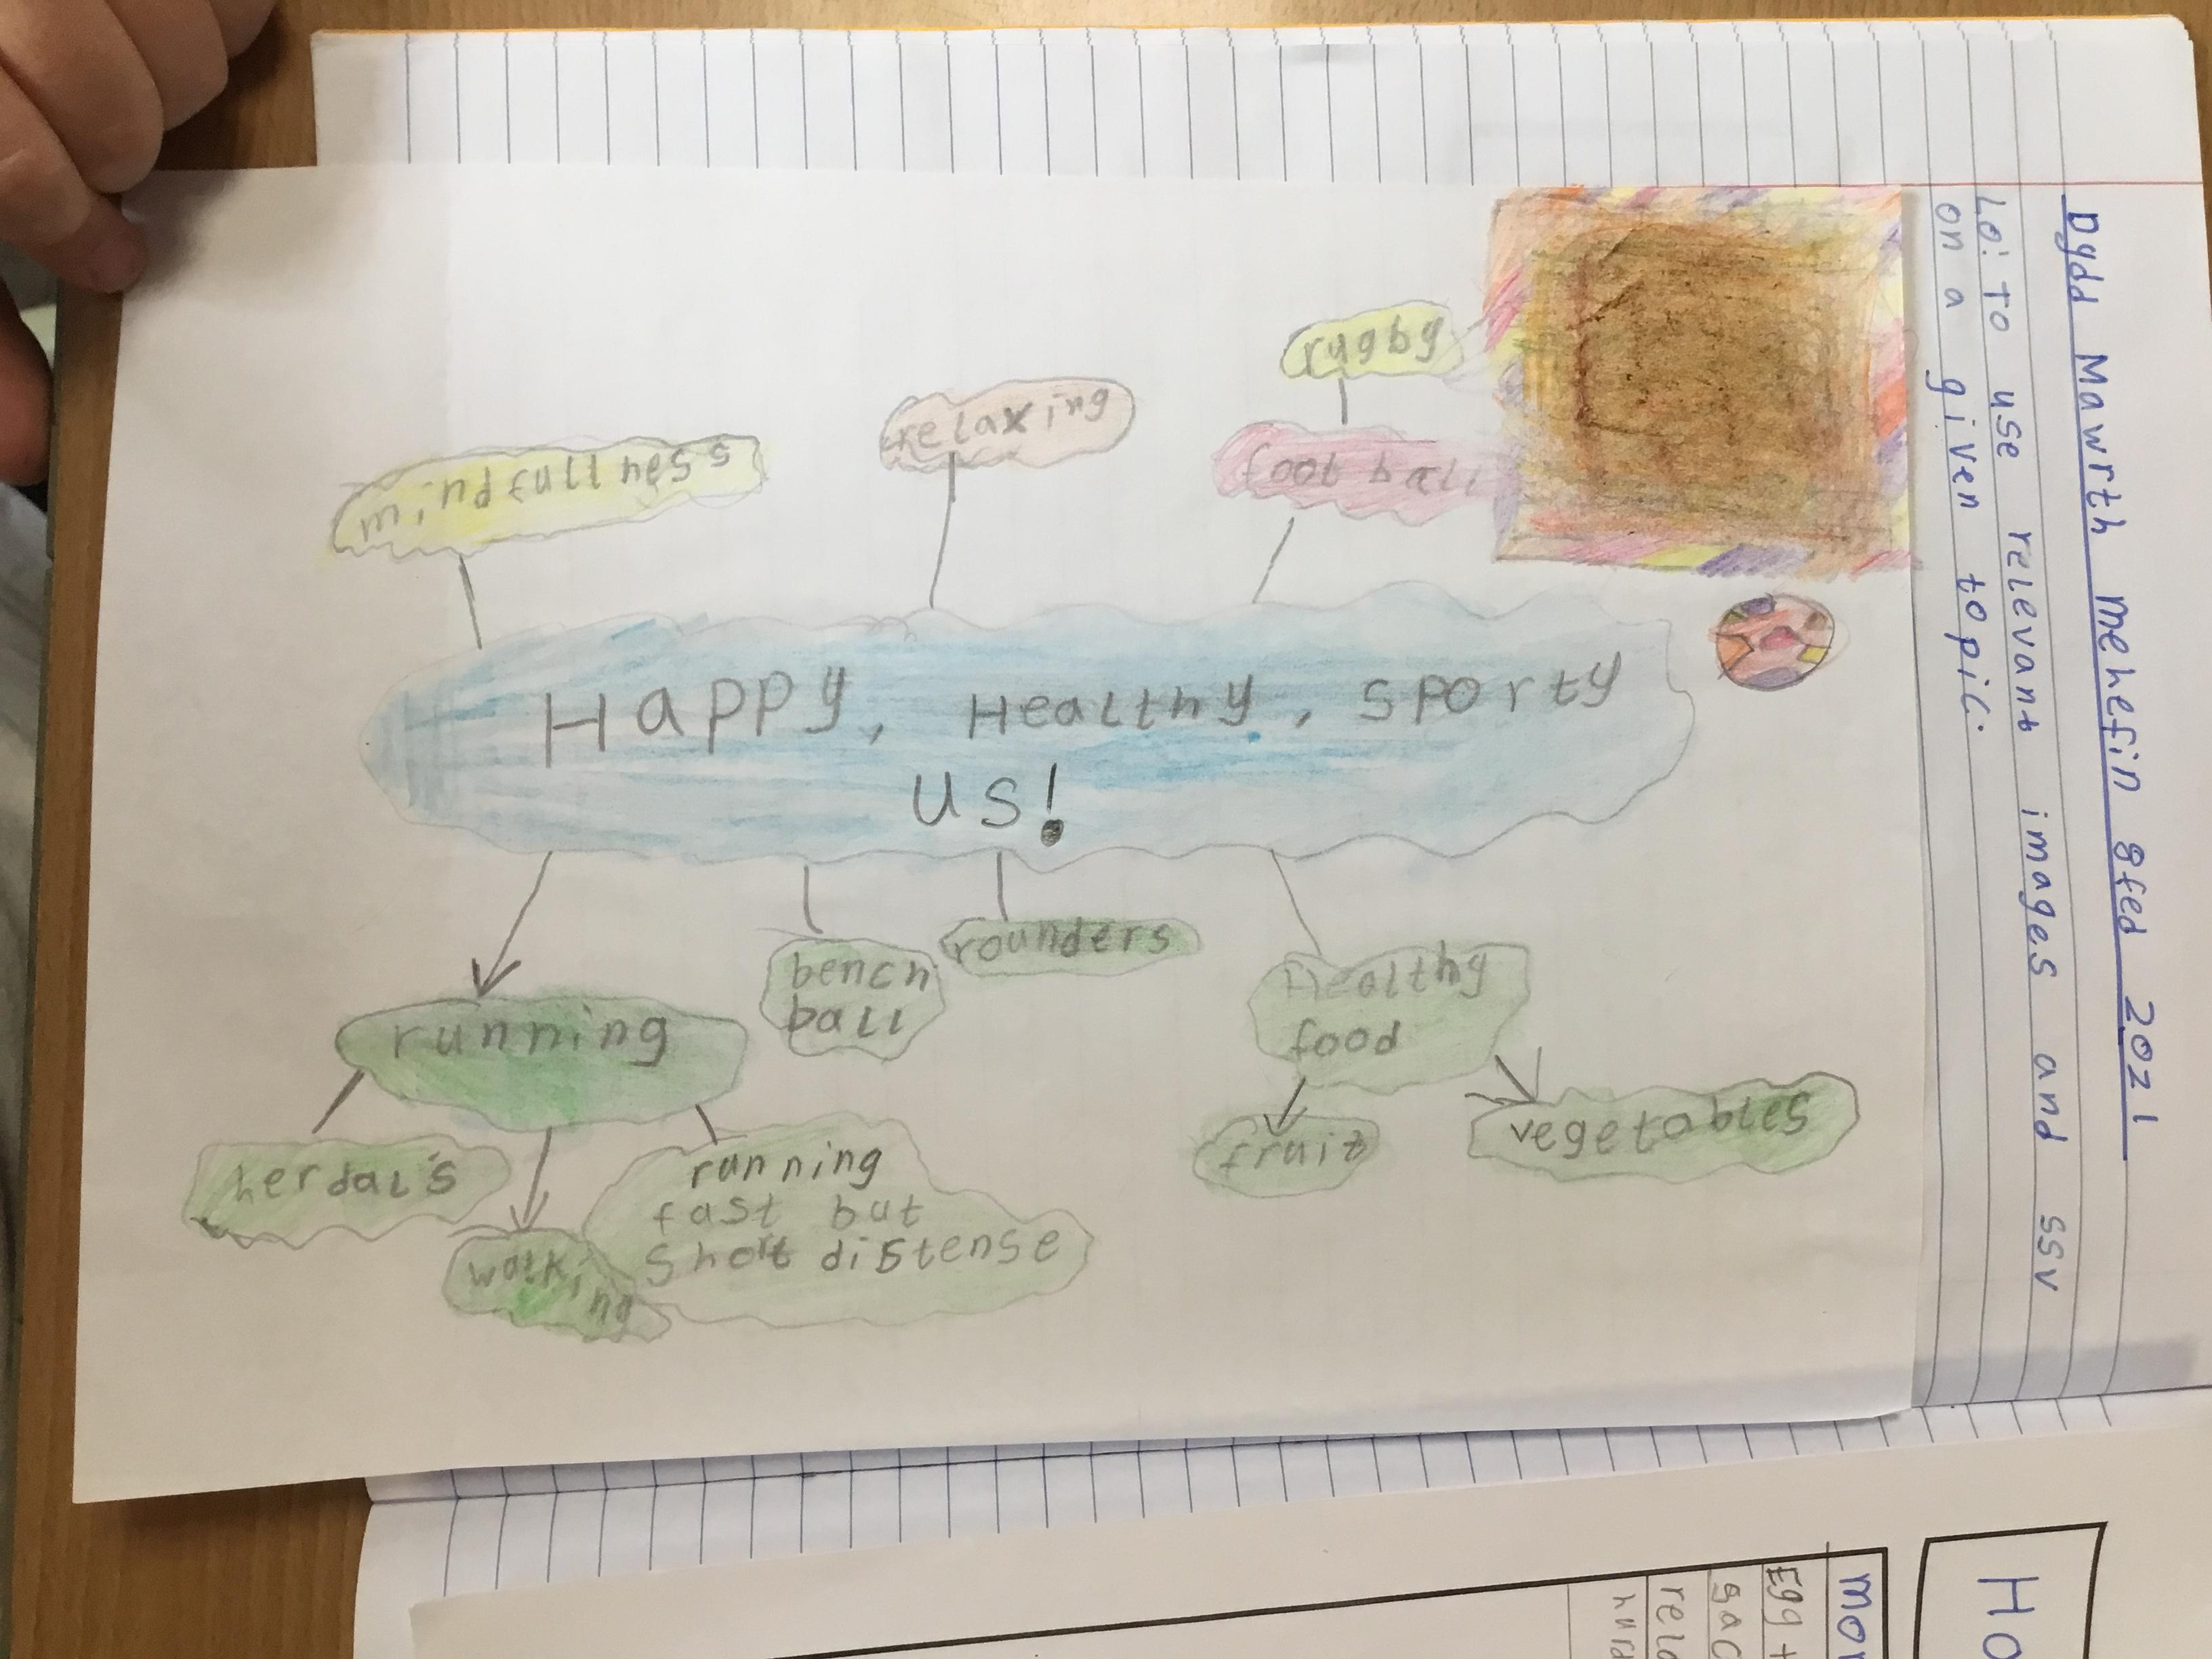 Dydd Mawrth Mehefin 8fed 2021
Lo: To use relevant images and SSV
on a given topic.
rugby
foot ball
relaxing
mindfullness
Happy, Healthy, Sporty
us!
running
bench
ball
rounders
Healthy
food
herdal's
walking
running
fast but
short distense
fruit
vegetables
Ho
mo
Egg +
gac
rela
hurd